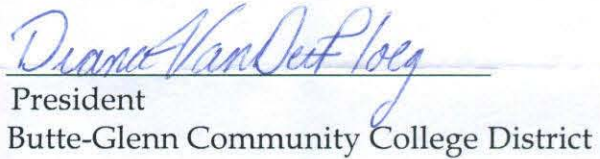 Diana VanDerPloeg
President
Butte-Glenn Community College District